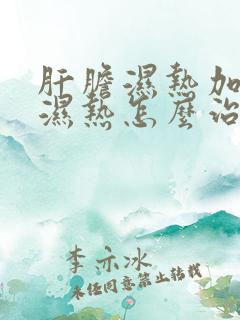 肝膽濕熱加
濕熱怎麼治
李示冰
未任同意禁止转载